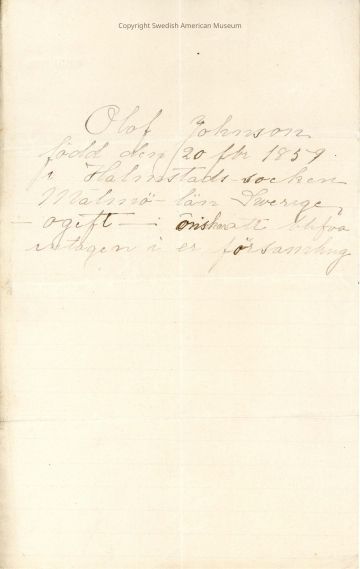 Copyright Swedish American Museum
Olof Johnson
född den 20 fbr 1859
i Halmstads socken
Malmö - län Sverige
- ogift - i önskar att blifva
intagen i er församling